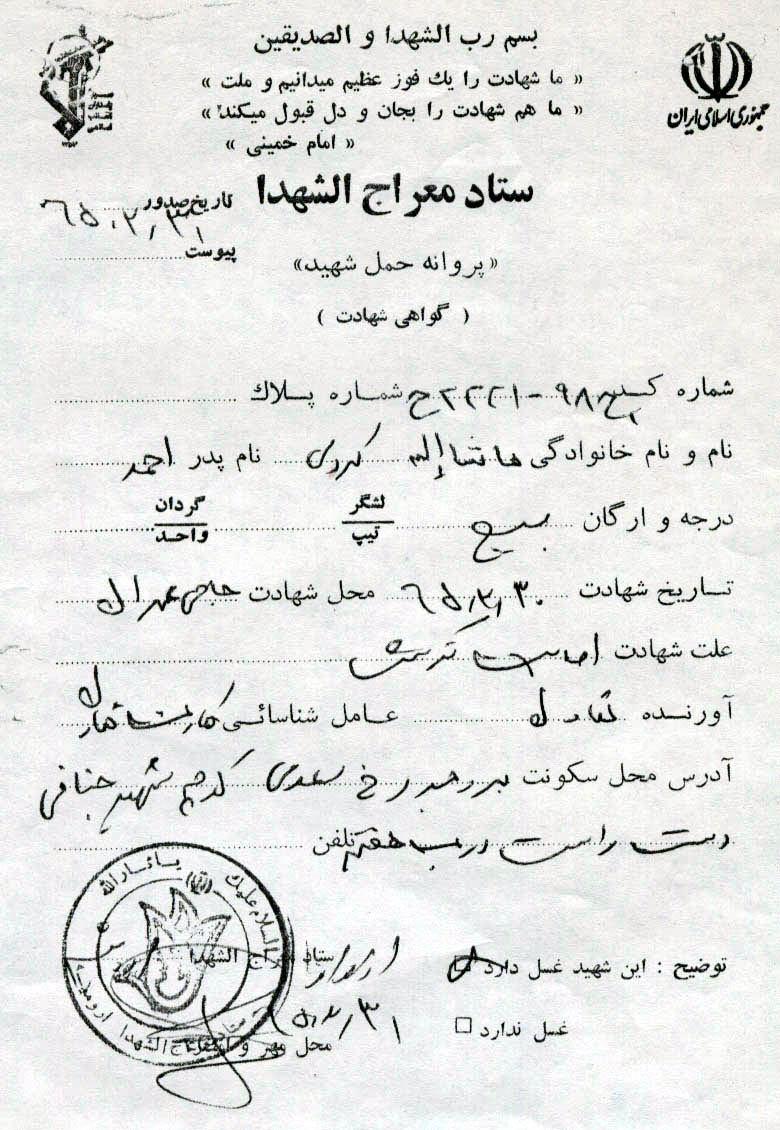 بسم رب الشهدا و الصدیقین
« ما شهادت را یك فوز عظیم میدانیم و ملت »
« ما هم شهادت را بجان و دل قبول میکند »
« امام خمینی »
جمهوری اسلامی ایران
ستاد معراج الشهدا
تاریخ صدور ۶۵،۲،۳۱
پیوست
«پروانه حمل شهید»
( گواهی شهادت )
شماره ۹۸ - ۲۲۲۱ ح شماره پلاك
نام و نام خانوادگی ماشاإله کردی نام پدر احمد
درجه و ارگان بسیج لشگر تیپ گردان واحد
تاریخ شهادت ۶۵،۲،۳۰ محل شهادت حاجی عمران
علت شهادت اصابت ترکش
آورنده تعاون عامل شناسائی کارت شناسائی
آدرس محل سکونت بروجرد خ سعدی کوچه شهید
دست راست درب هفتم تلفن
توضیح : این شهید غسل دارد
غسل ندارد
ستاد معراج الشهدا
۳۱
محل مهر و امضاء
السلام علیك یا ثارالله
ستاد معراج الشهدا ارومیه